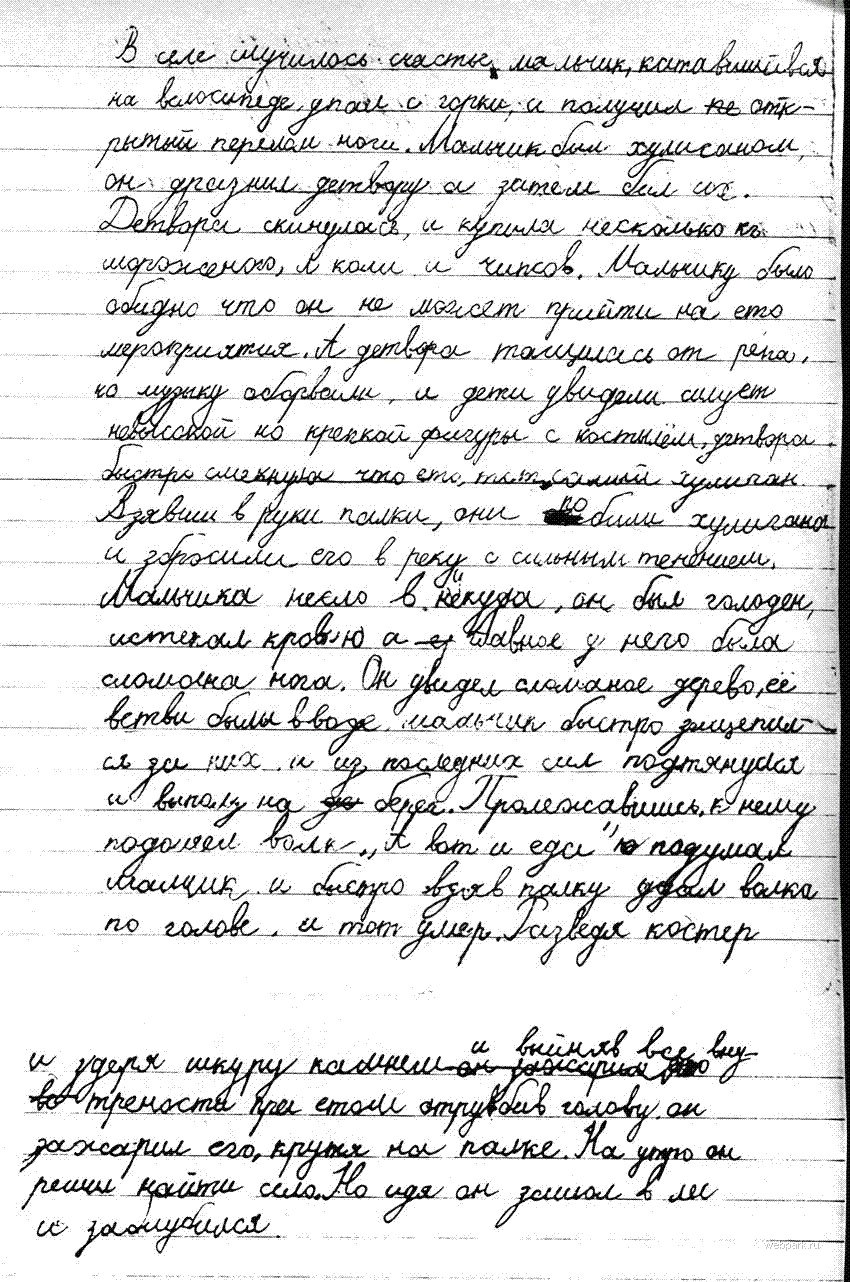 В селе случилось счастье, мальчик, катавшийвся
на велосипеде упал с горки, и получил не отк-
рытый перелом ноги. Мальчик был хулисаном,
он дразнил детвору а затем бил их.
Детвора скинулась, и купила несколько кг
мороженого, и коли и чипсов. Мальчику было
обидно что он не может прийти на ето
мероприятия. А детвора тащилась от репа,
но музыку обборвали, и дети увидели силует
невысокой но крепкой фигуры с костылём, детвора
быстро смекнула что ето, тот самый хулиган.
Взявши в руки палки, они побили хулигана
и збросили его в реку с сильным течением.
Мальчика несло в никуда, он был голоден,
истекал кровью а главное у него была
сломана нога. Он увидел сломаное дерево, её
ветви были в воде. мальчик быстро зацепил-
ся за них. и из последних сил подтянулся
и выполз на берег. Пролежавшись, к нему
подошел волк. „А вот и еда" подумал
малцик. и быстро взяв палку удал волка
по голове. и тот умер. Разведя костер
и здеря шкуру камнем и выйняв все вну-
трености при етом отрубив голову. он
зажарил его, крутя на палке. На утро он
решил найти село. Но идя он зашол в лес
и заблубился.
webpark.ru